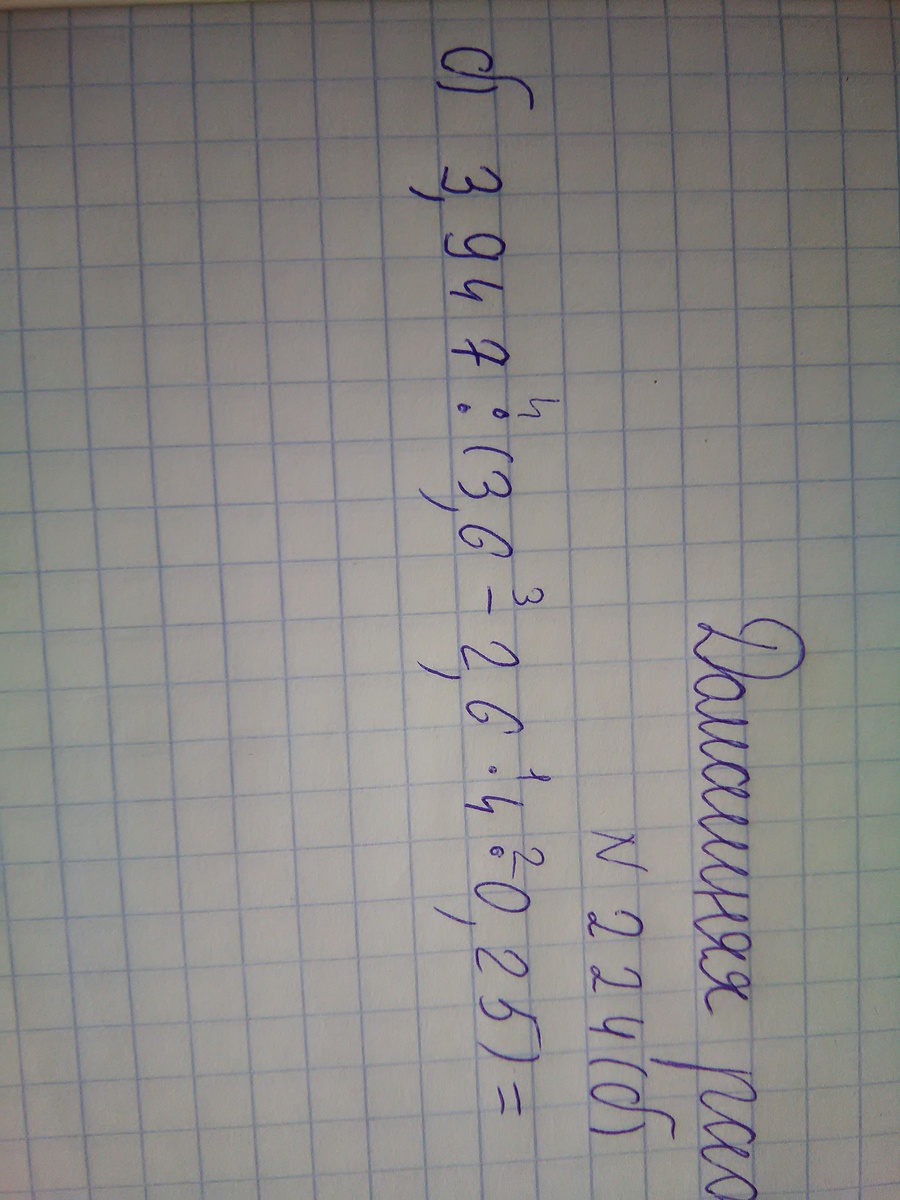 Домашняя рабо
N 224(б)
б) 3,947 :⁴ (3,6 -³ 2,6 ·¹ 4 :² 0,25) =